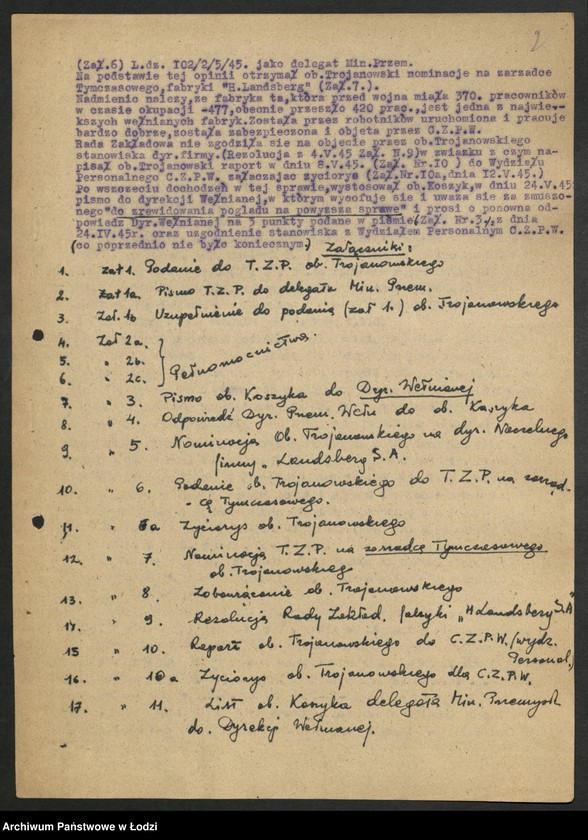 2
(Zał.6) L.dz. I02/2/5/45. jako delegat Min.Przem.
Na podstawie tej opinii otrzymał ob.Trojanowski nominacje na zarzadce
Tymczasowego,fabryki "H.Landsberg" (Zał.7.).
Nadmienic nalezy,ze fabryka ta,która przed wojna miała 370. pracowników
w czasie okupacji -477,obecnie przeszło 420 prac.,jest jedna z najwie-
kszych wełnianych fabryk.Została przez robotników uruchomiona i pracuje
bardzo dobrze,została zabezpieczona i objeta przez C.Z.P.W.
Rada Zakładowa nie zgodziła sie na objecie przez ob.Trojanowskiego
stanowiska dyr.firmy.(Rezolucja z 4.V.45 Zał. N.9)w zwiazku z czym na-
pisał ob.Trojanowski raport w dniu 8.V.45. (Zał. Nr.I0 ) do Wydziału
Personalnego C.Z.P.W. załaczajac zyciorys (Zał.Nr.I0a,dnia I2.V.45.)
Po wszczeciu dochodzeń w tej sprawie,wystosował ob.Koszyk,w dniu 24.V.45
pismo do dyrekcji Wełnianej,w którym wycofuje sie i uwaza sie za zmuszo-
nego"do zrewidowania pogladu na powyzsza sprawe" i prosi o ponowna od-
powiedz Dyr.Wełnianą na 3 punkty podane w piśmie(Zał. Nr.3.,z dnia
24.IV.45r. oraz uzgodnienie stanowiska z Wydziałem Personalnym C.Z.P.W.
(co poprzednio nie było koniecznym.) Załączniki:
1. Zał 1. Podanie do T.Z.P. ob. Trojanowskiego
2. Zał 1a. Pismo T.Z.P. do delegata Min. Przem.
3. Zał. 1b Uzupełnienie do podania (zał 1.) ob. Trojanowskiego
4. Zał 2a.
5. " 2b. } Pełnomocnictwa.
6. " 2c.
7. " 3. Pismo ob. Koszyka do Dyr. Wełnianej
8. " 4. Odpowiedź Dyr. Przem. Wełn do ob. Koszyka
9. " 5. Nominacja Ob. Trojanowskiego na dyr. Naczelnego
firmy „Landsberg S.A.
10. " 6. Podanie ob. Trojanowskiego do T.Z.P. na zarząd-
-cę Tymczasowego.
11. " 6a Życiorys ob. Trojanowskiego
12. " 7. Nominacja T.Z.P. na zarządcę Tymczasowego
ob. Trojanowskiego
13. " 8. Zobowiązanie ob. Trojanowskiego
14. " 9. Rezolucja Rady Zakład. fabryki „H Landsberg S.A"
15 " 10. Raport ob. Trojanowskiego do C.Z.P.W. (wydz.
Personal.)
16. " 10a Życiorys ob. Trojanowskiego dla C.Z.P.W.
17. " 11. List ob. Koszyka delegata Min. Przemysł.
do Dyrekcji Wełnianej.
Archiwum Państwowe w Łodzi